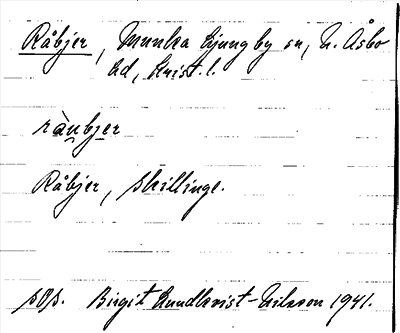 Råbjer, Munka Ljungby sn, N. Åsbo
hd, Krist. l.
ràu̯bjer
Råbjer, skillinge.
sOs. Birgit Lundkvist-Nilsson 1941.